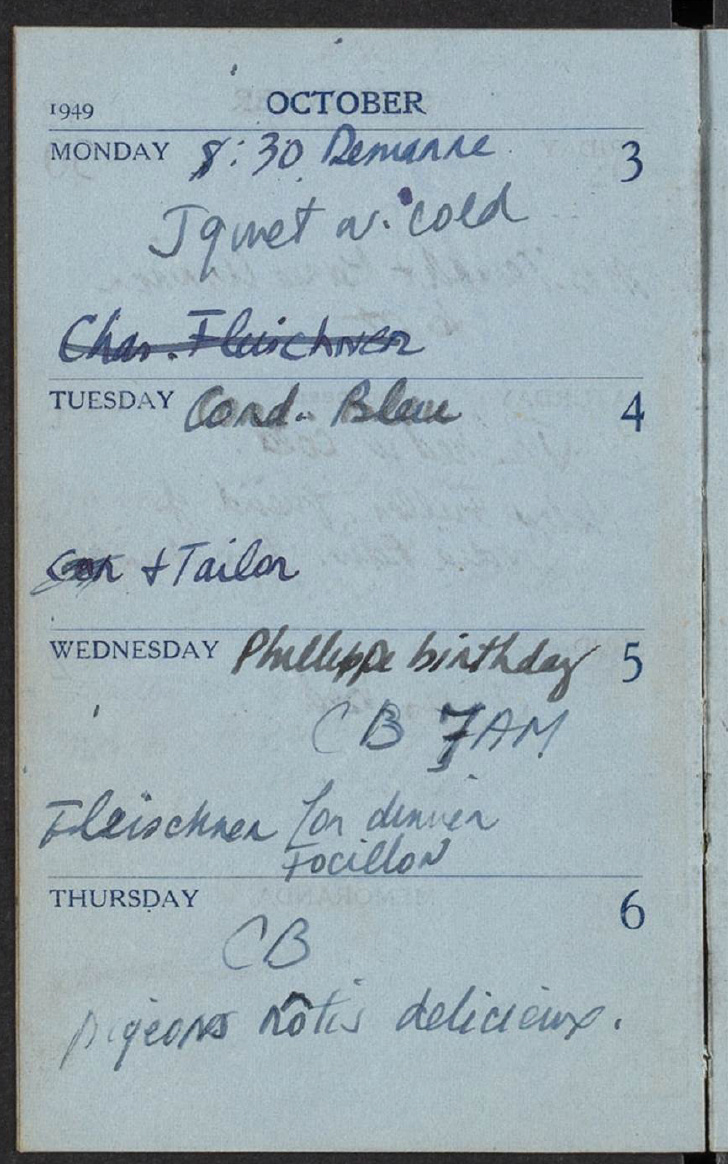 1949 OCTOBER
MONDAY 8:30 3
J quiet w. cold
Chas. Fleischner
TUESDAY Cord. Bleu 4
+ Tailor
WEDNESDAY Phillippe birthday 5
CB 7AM
Fleischner for dinner
Focillon
THURSDAY 6
CB
pigeons rôtis delicieux.